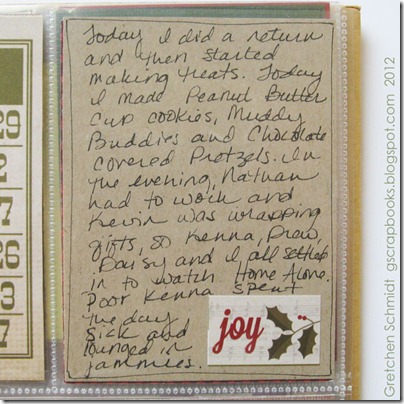 Today I did a return
and then started
making treats. Today
I made Peanut Butter
Cup cookies, Muddy
Buddies and Chocolate
covered Pretzels. In
the evening, Nathan
had to work and
Kevin was wrapping
gifts, so Kenna, Drew,
Daisy and I all settled
in to watch Home Alone.
Poor Kenna spent
the day
sick and
lounged in
jammies.
joy
29
2
7
26
3
7
Gretchen Schmidt gsscrapbooks.blogspot.com 2012